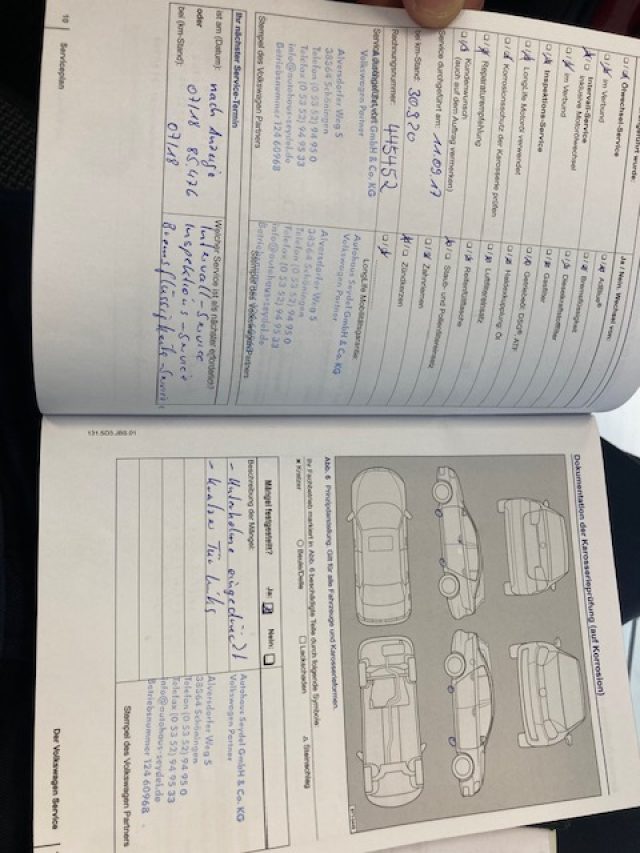 Oilwechsel-Service
im Verbund
Intervall-Service
inklusive Motorölwechsel
im Verbund
Inspektions-Service
LongLife Motoröl verwendet
Korrosionsschutz der Karosserie prüfen
Reparaturempfehlung
Kundenwunsch
(auch auf dem Auftrag vermerken)
Service durchgeführt am: 11.09.17
bei km-Stand: 30.920
Rechnungsnummer: 445452
Autohaus Seydel GmbH & Co. KG
Volkswagen Partner
Alversdorfer Weg 5
38364 Schöningen
Telefon (0 53 52) 94 95 0
Telefax (0 53 52) 94 95 33
info@autohaus-seydel.de
Betriebsnummer 124 60968
Stempel des Volkswagen Partners
Ja / Nein, Wechsel von:
AdBlue®
Bremsflüssigkeit
Gasfilter
Getriebeöl, DSG®, ATF
Haldexkupplung: Öl
Luftfiltereinsatz
Reifenfüllflasche
Staub- und Pollenfiltereinsatz
Zahnriemen
Zündkerzen
LongLife Mobilitätsgarantie:
Autohaus Seydel GmbH & Co. KG
Volkswagen Partner
Alversdorfer Weg 5
38364 Schöningen
Telefon (0 53 52) 94 95 0
Telefax (0 53 52) 94 95 33
info@autohaus-seydel.de
Stempel des Volkswagen Partners
Ihr nächster Service-Termin
ist am (Datum): nach Anzeige
oder 07/18 85426
bei (km-Stand): 07/18
Welcher Service ist als nächster erforderlich?
Intervall-Service
Inspektions-Service
Bremsflüssigkeits-Service
10 Serviceplan
Dokumentation der Karosserieprüfung (auf Korrosion)
Abb. 6 Prinzipdarstellung. Gilt für alle Fahrzeuge und Karosserieformen.
Ihr Fachbetrieb markiert in Abb. 6 beschädigte Teile durch folgende Symbole:
× Kratzer
○ Beule/Delle
□ Lackschaden
△ Steinschlag
Mängel festgestellt? Ja: Nein:
Beschreibung der Mängel:
- Unterholme eingedrückt
- Kratzer Tür links
Autohaus Seydel GmbH & Co. KG
Volkswagen Partner
Alversdorfer Weg 5
38364 Schöningen
Telefon (0 53 52) 94 95 0
Telefax (0 53 52) 94 95 33
info@autohaus-seydel.de
Betriebsnummer 124 60968
Stempel des Volkswagen Partners
131.5D3.JBS.01
Der Volkswagen Service